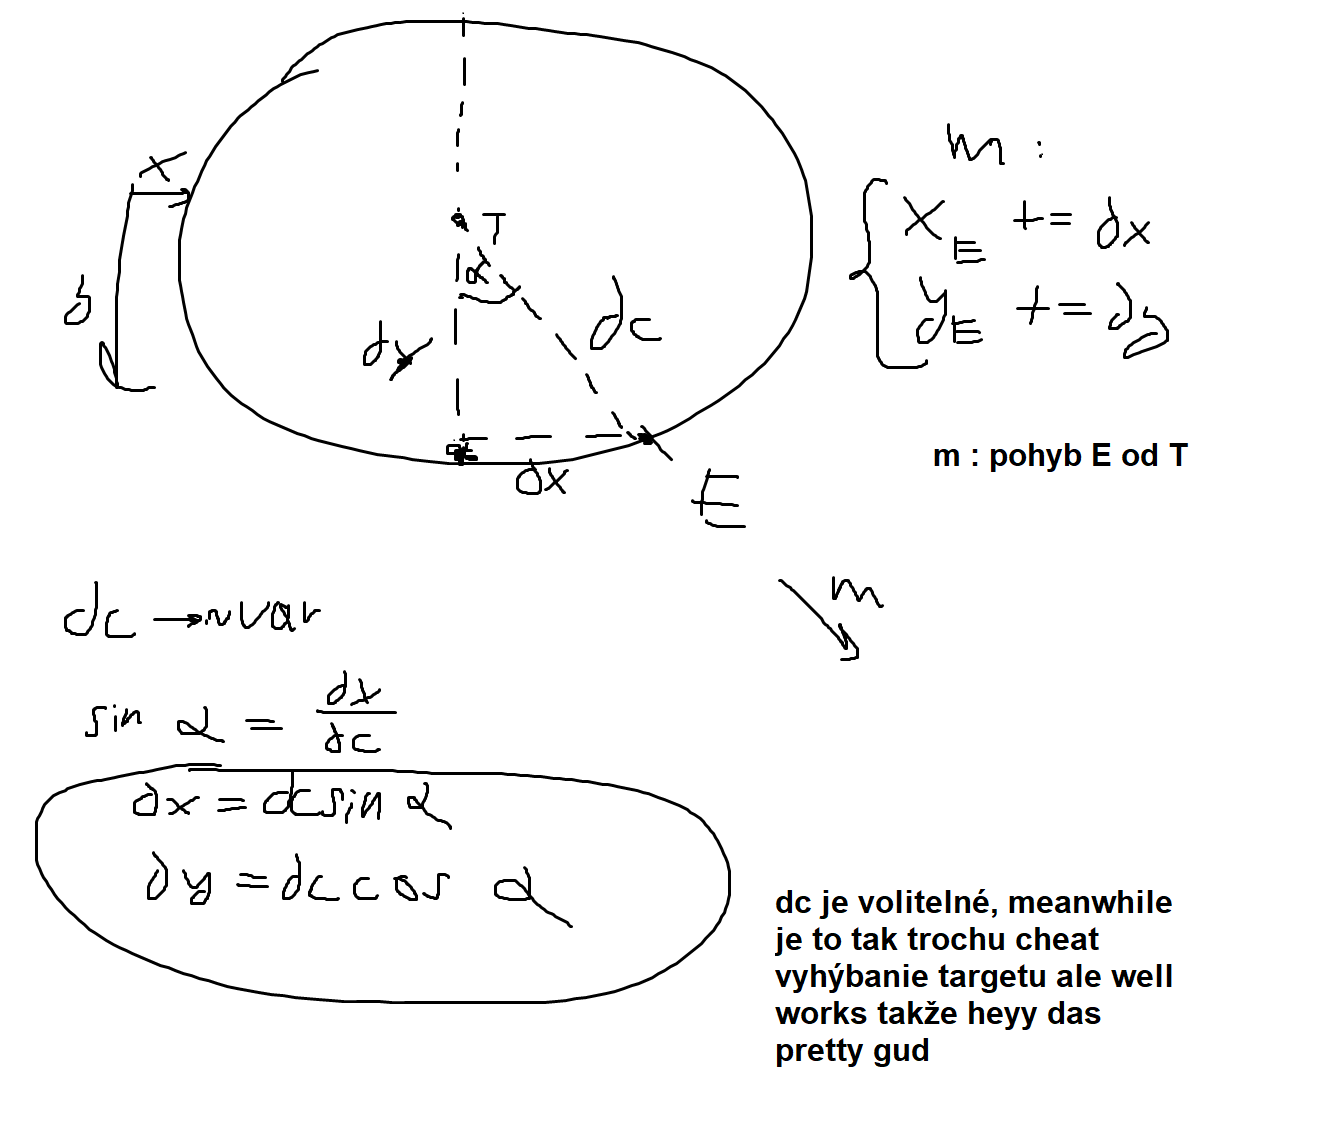 x
y
T
α
dy
dc
dx
E
m :
x_E += dx
y_E += dy
m : pohyb E od T
m
dc → nvar
sin α = dx/dc
dx = dc sin α
dy = dc cos α
dc je volitelné, meanwhile
je to tak trochu cheat
vyhýbanie targetu ale well
works takže heyy das
pretty gud